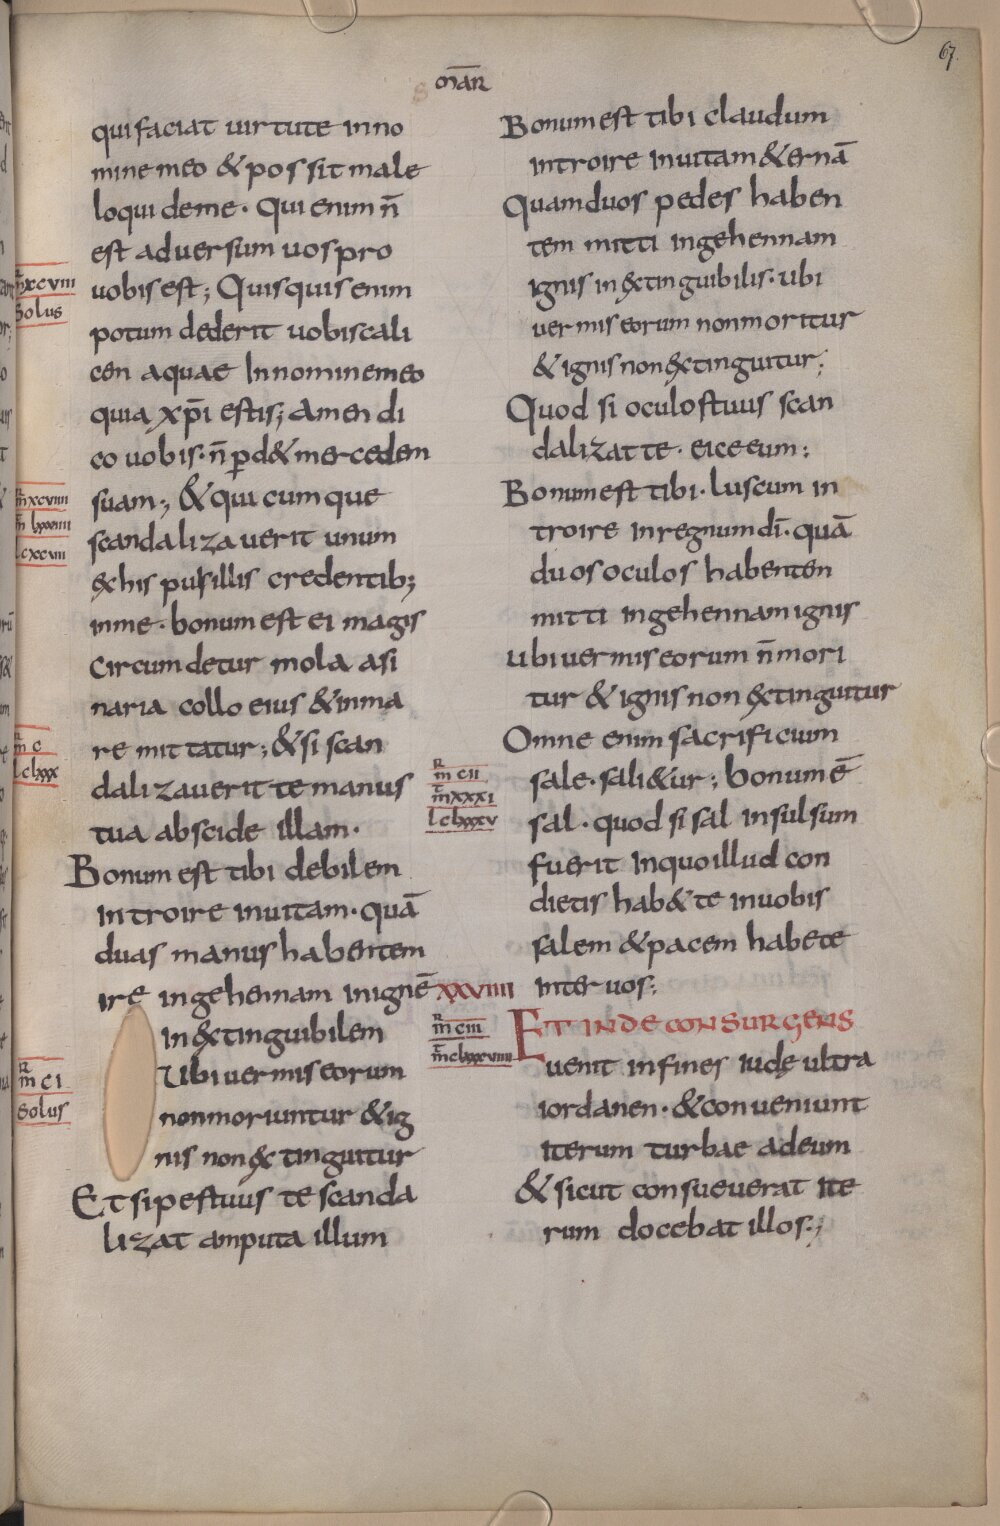 67.
s mar̄
qui faciat uirtute in no
mine meo & possit male
loqui deme · Qui enim n̄
est aduersum uos pro
uobis est ; Quisquis enim
potum dederit uobis cali
cen aquae In nomine meo
quia xp̄i estis ; Amen di
co uobis · n̄ p̱d& merceden
suam ; & quicumque
scandalizauerit unum
exhis pusillis credentib;
inme · bonum est ei magis
Circumdetur mola asi
naria collo eius & inma
re mittatur ; & si scan
dalizauerit te manus
tua abscide illam ·
Bonum est tibi debilem
introire inuitam · quā
duas manus habentem
ire ingehennam inignē
inextinguibilem
Ubi uermis eorum
nonmoriuntur & ig
nis non extinguitur
Et si pes tuus te scanda
lizat amputa illum
m xcviii
Solus
m xcviiii
m lxxxviiii
l cxcvii
m c
l clxxx
m ci
solus
Bonum est tibi claudum
introire inuitam & ernā
Quam duos pedes haben
tem mitti ingehennam
ignis inextinguibilis · ubi
uermis eorum nonmoritur
& ignis nonextinguitur ;
Quod si oculos tuus scan
dalizat te · eice eum :
Bonum est tibi · luscum in
troire inregnum dī · quā
duos oculos habenten
mitti ingehennam ignis
Ubi uermis eorum n̄ mori
tur & ignis non extinguitur
Omne enim sacrificium
sale · sali&ur ; bonum ē
sal · quod si sal insulsum
fuerit Inquo illud con
dietis hab&te inuobis
salem & pacem habete
inter uos ;
xxviiii
Et inde consurgens
uenit infines iudę ultra
iordanen · & conueniunt
iterum turbae adeum
& sicut consueuerat ite
rum docebat illos ;
m cii
m xxxi
l clxxxv
m ciii
m clxxxviiii